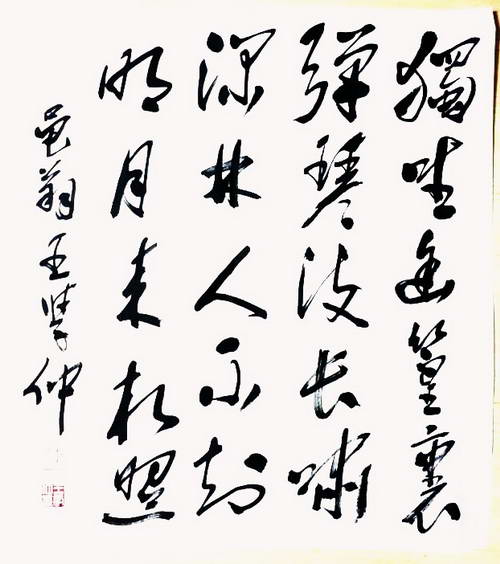 獨坐幽篁裏
彈琴復長嘯
深林人不知
明月来相照
黽翁王學仲